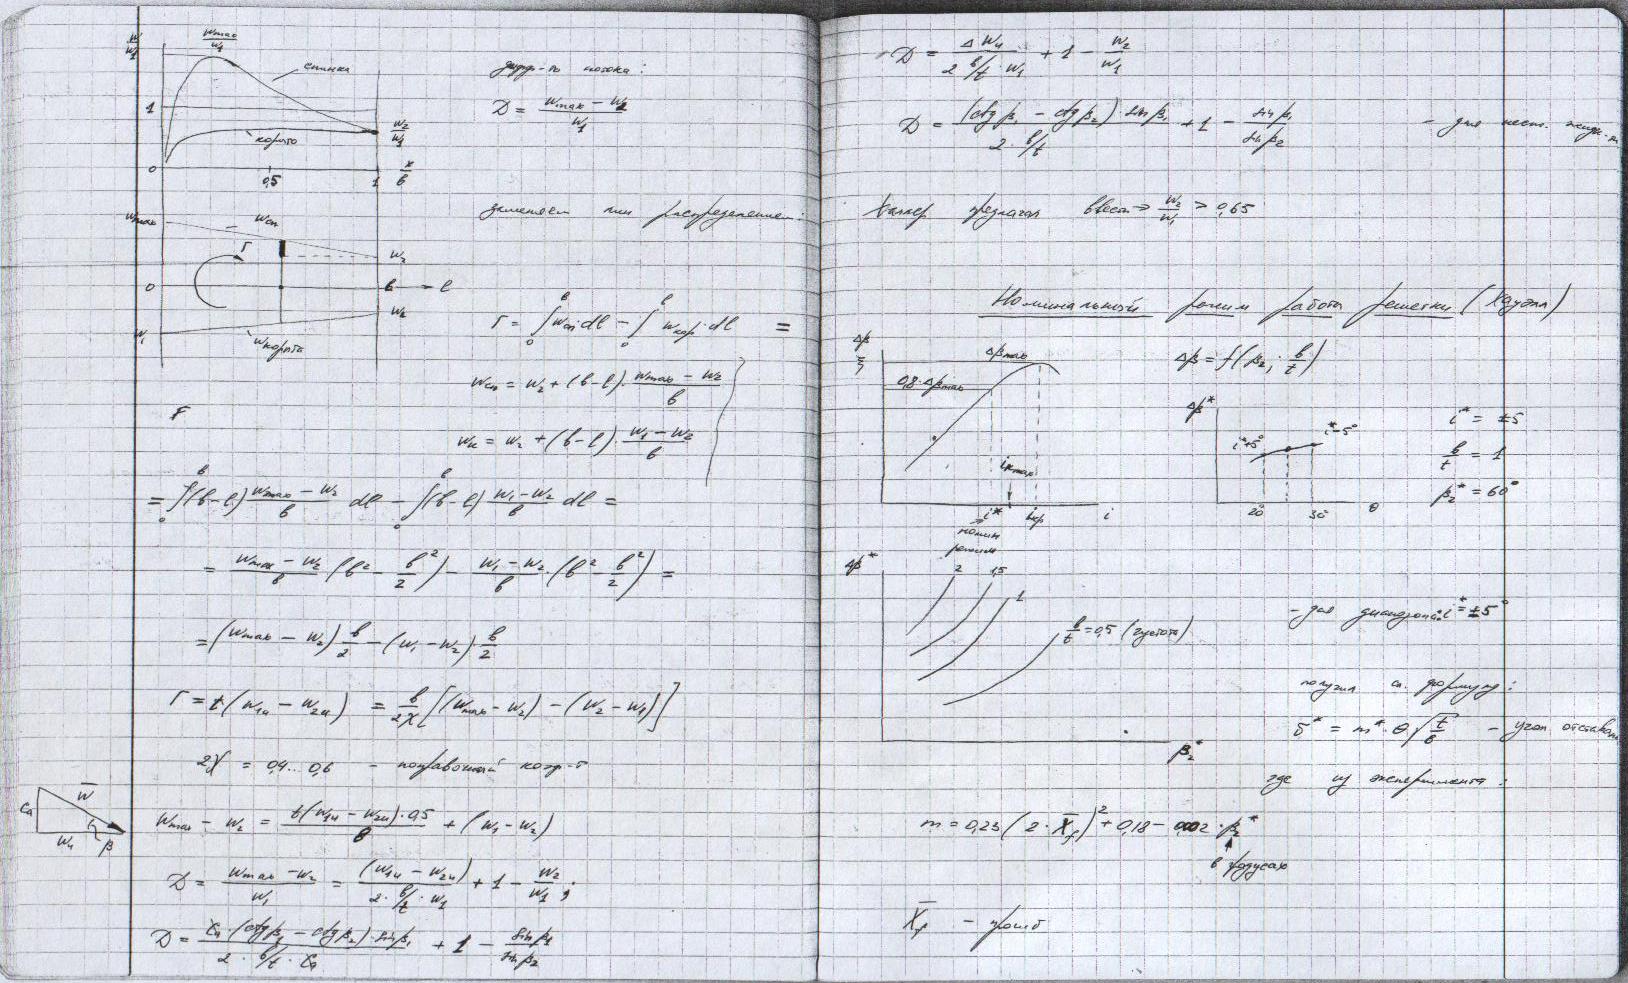 w/w₁
wmax/w₁
спинка
1
корыто
w₂/w₁
0
0,5
1
x/b
D = (wmax − w₂)/w₁
wmax
wсп
Г
w₂
0
в
l
w₁
w₂
wкорыта
заменяем распределение:
Г = ∫₀ᵇ wсп·dl − ∫₀ᵇ wкор·dl =
wсп = w₂ + (b−l)·(wmax − w₂)/b
wк = w₂ + (b−l)·(w₁ − w₂)/b
= ∫₀ᵇ (b−l) (wmax − w₂)/b dl − ∫₀ᵇ (b−l) (w₁ − w₂)/b dl =
= (wmax − w₂)/b (b² − b²/2) − (w₁ − w₂)/b·(b² − b²/2) =
= (wmax − w₂) b/2 − (w₁ − w₂)·b/2
Г = t(w₁u − w₂u) = b/2χ [(wmax − w₂) − (w₂ − w₁)]
2χ = 0,4...0,6 – поправочный коэф-т
w̄
Ca
wu
β
wmax − w₂ = t(w₁u − w₂u)·0,5/b + (w₁ − w₂)
D = (wmax − w₂)/w₁ = (w₁u − w₂u)/(2·b/t·w₁) + 1 − w₂/w₁;
D = Ca·(ctgβ₁ − ctgβ₂)·sinβ₁/(2·b/t·Ca) + 1 − sinβ₁/sinβ₂
D = Δwu/(2 b/t·w₁) + 1 − w₂/w₁
D = (ctgβ₁ − ctgβ₂)·sinβ₁/(2·b/t) + 1 − sinβ₁/sinβ₂ – для
Халлер предлагал ввести → w₂/w₁ > 0,65
Номинальный режим работа решетки (Хауэлл)
Δβ
ξ
Δβmax
0,8·Δβmax
iкmax
i*
iкр
i
номин
режим
Δβ = f(β₂; b/t)
Δβ*
i*+5°
i*−5°
20
30
θ
i* = ±5
b/t = 1
β₂* = 60°
Δβ*
2
1,5
1
b/t = 0,5 (густота)
β₂*
– для диапазона: i* = ±5°
получил сл. формулу:
δ* = m*·θ√(t/b) – угол отставан
где из эксперимента:
m = 0,23(2·X̄f)² + 0,18 − 0,002·β₂*
в градусах
X̄f – прогиб